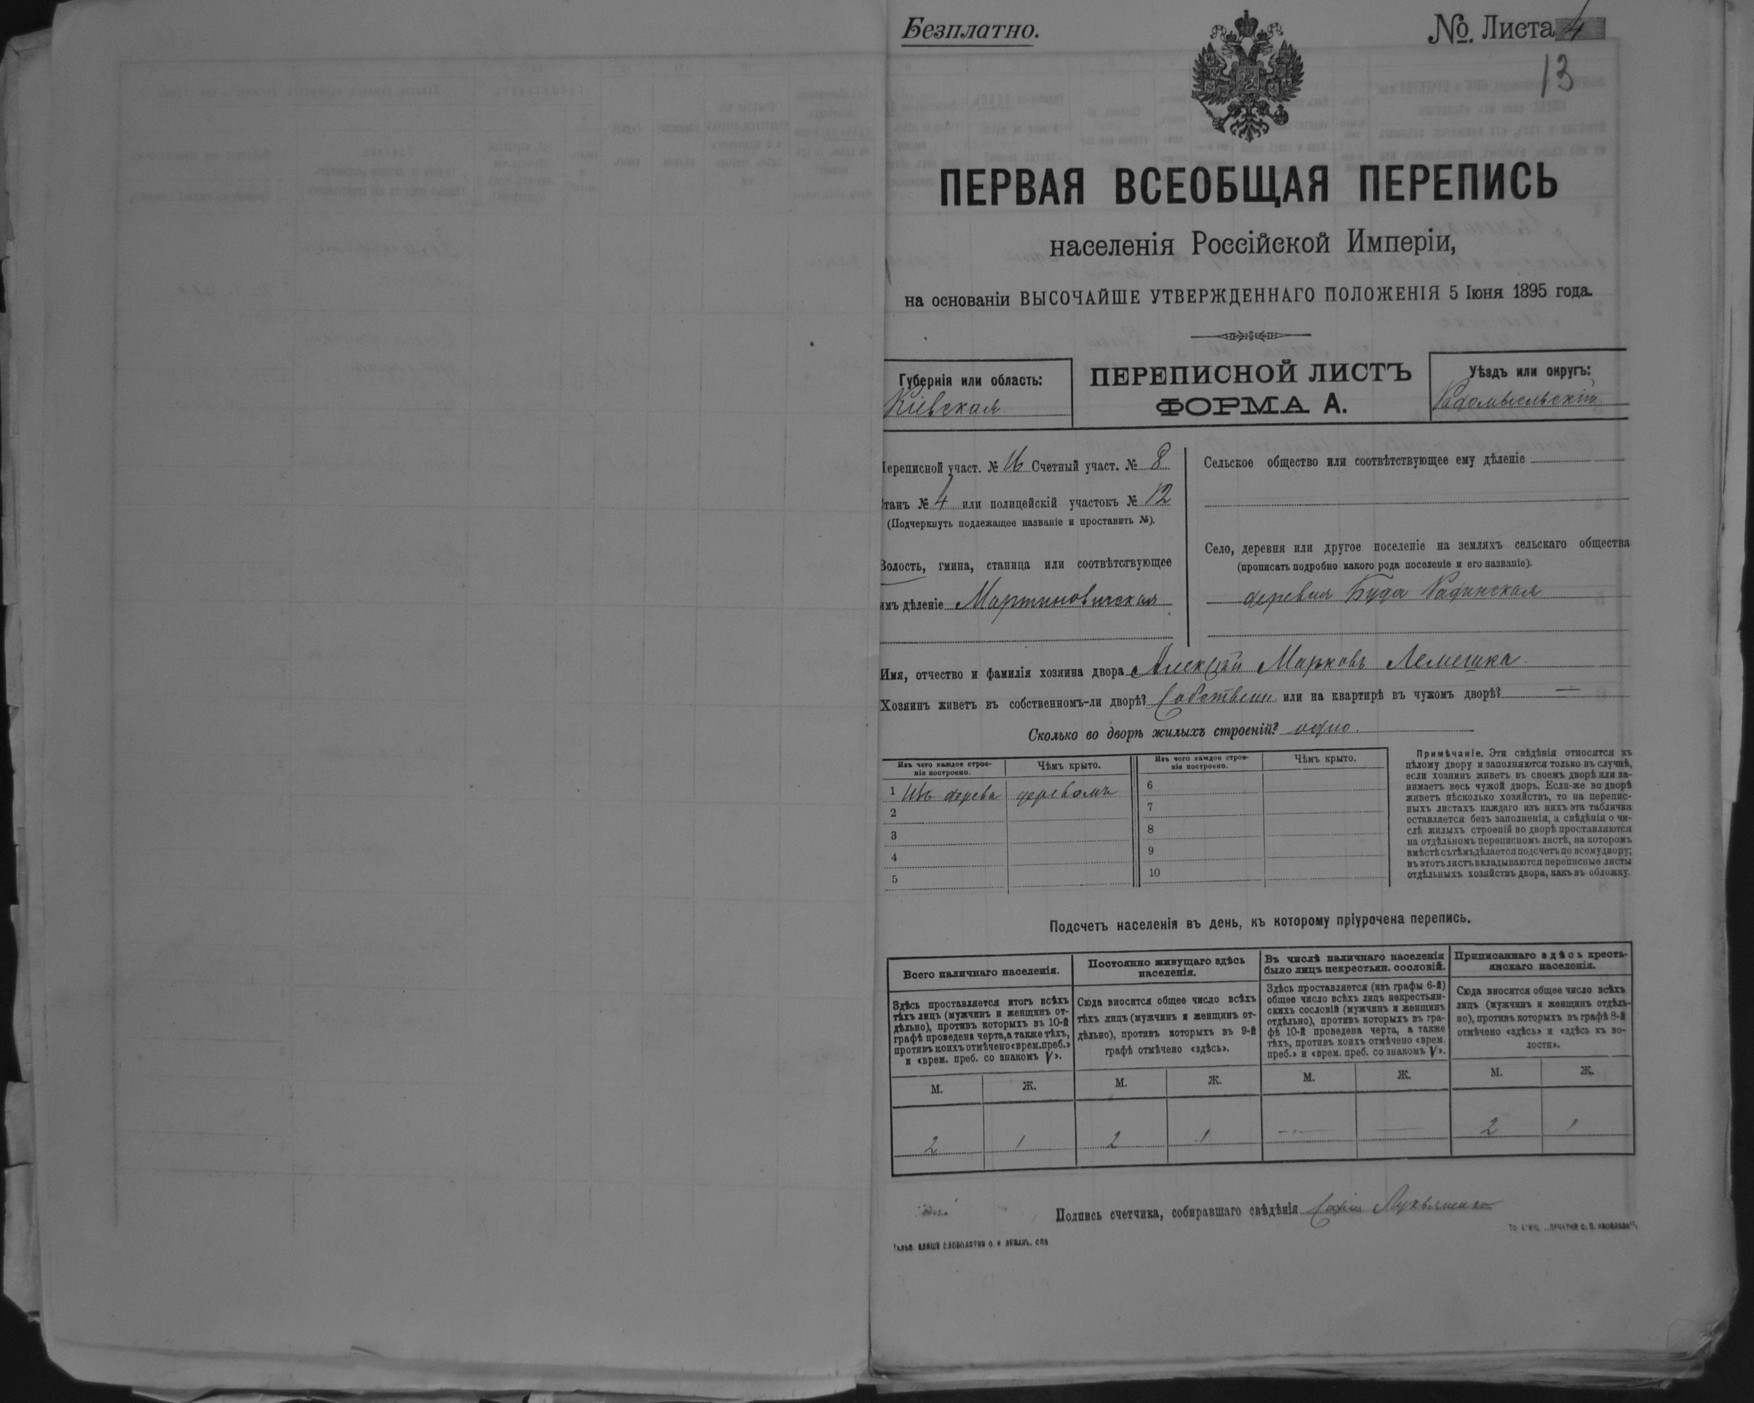 Безплатно.
№. Листа 4
13
ПЕРВАЯ ВСЕОБЩАЯ ПЕРЕПИСЬ
населенія Россійской Имперіи,
на основаніи ВЫСОЧАЙШЕ УТВЕРЖДЕННАГО ПОЛОЖЕНІЯ 5 Іюня 1895 года.
Губернія или область:
Кіевская
ПЕРЕПИСНОЙ ЛИСТЪ
ФОРМА А.
Уѣздъ или округъ:
Радомысльскій
Переписной участ. № 16 Счетный участ. № 8
Станъ № 4 или полицейскій участокъ № 12
(Подчеркнуть подлежащее названіе и проставить №).
Волость, гмина, станица или соотвѣтствующее
имъ дѣленіе Мартиновичская
Сельское общество или соотвѣтствующее ему дѣленіе
Село, деревня или другое поселеніе на земляхъ сельскаго общества
(прописать подробно какого рода поселеніе и его названіе).
деревня Буда Радинская
Имя, отчество и фамилія хозяина двора Алексѣй Марковъ Лемешка
Хозяинъ живетъ въ собственномъ-ли дворѣ? Собствен или на квартирѣ въ чужомъ дворѣ? —
Сколько во дворѣ жилыхъ строеній? одно.
Изъ чего каждое строе-
ніе построено.
Чѣмъ крыто.
Изъ чего каждое строе-
ніе построено.
Чѣмъ крыто.
1 Изъ дерева деревомъ
2
3
4
5
6
7
8
9
10
Примѣчаніе. Эти свѣдѣнія относятся къ
цѣлому двору и заполняются только въ случаѣ,
если хозяинъ живетъ въ своемъ дворѣ или за-
нимаетъ весь чужой дворъ. Если-же во дворѣ
живетъ нѣсколько хозяйствъ, то на перепис-
ныхъ листахъ каждаго изъ нихъ эта табличка
оставляется безъ заполненія, а свѣдѣнія о чи-
слѣ жилыхъ строеній во дворѣ проставляются
на отдѣльномъ переписномъ листѣ, на которомъ
вмѣстѣ съ тѣмъ дѣлается подсчетъ по всему двору;
въ этотъ листъ вкладываются переписные листы
отдѣльныхъ хозяйствъ двора, какъ въ обложку.
Подсчетъ населенія въ день, къ которому пріурочена перепись.
Всего наличнаго населенія.
Здѣсь проставляется итогъ всѣхъ
тѣхъ лицъ (мужчинъ и женщинъ от-
дѣльно), противъ которыхъ въ 10-й
графѣ проведена черта, а также тѣхъ,
противъ коихъ отмѣчено «врем. преб.»
и «врем. преб. со знакомъ V».
Постоянно живущаго здѣсь
населенія.
Сюда вносится общее число всѣхъ
тѣхъ лицъ (мужчинъ и женщинъ от-
дѣльно), противъ которыхъ въ 9-й
графѣ отмѣчено «здѣсь».
Въ числѣ наличнаго населенія
было лицъ некрестьян. сословій.
Здѣсь проставляется (изъ графы 6-й)
общее число всѣхъ лицъ некрестьян-
скихъ сословій (мужчинъ и женщинъ
отдѣльно), противъ которыхъ въ гра-
фѣ 10-й проведена черта, а также
тѣхъ, противъ коихъ отмѣчено «врем.
преб.» и «врем. преб. со знакомъ V».
Приписаннаго здѣсь кресть-
янскаго населенія.
Сюда вносится общее число всѣхъ
лицъ (мужчинъ и женщинъ отдѣль-
но), противъ которыхъ въ графѣ 8-й
отмѣчено «здѣсь» и «здѣсь къ во-
лости».
М. Ж. М. Ж. М. Ж. М. Ж.
2 1 2 1 — — 2 1
Подпись счетчика, собиравшаго свѣдѣнія Лукьяненко